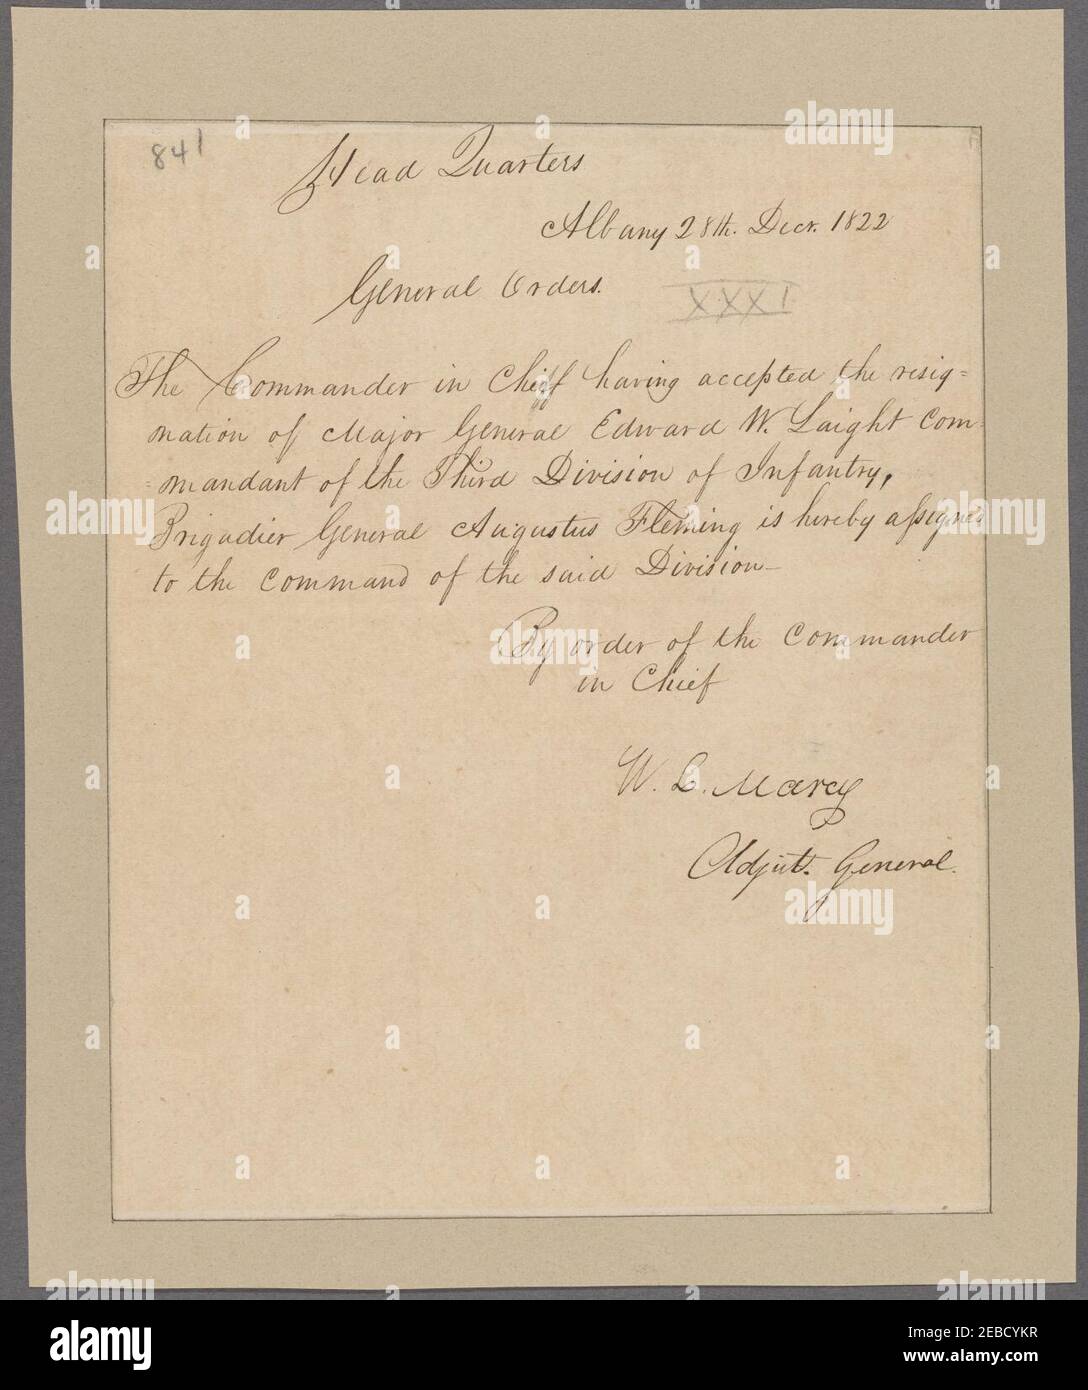 841
Head Quarters
Albany 28th. Decr. 1822
General Orders.
XXXI
The Commander in Chief having accepted the resig=
nation of Major General Edward W. Laight Com=
=mandant of the Third Division of Infantry,
Brigadier General Augustus Fleming is hereby assigned
to the command of the said Division—
By order of the Commander
in Chief
W. L. Marcy
Adjut. General.
alamy
Image ID: 2EBCYKR
www.alamy.com